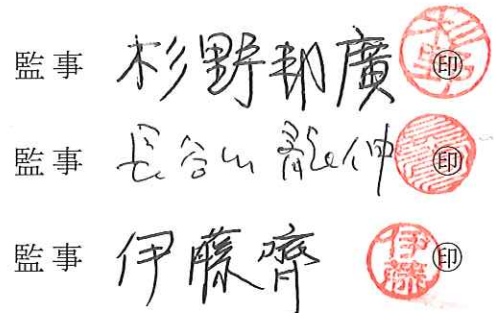 監事 杉野邦廣 ㊞
監事 長谷山 ㊞
監事 伊藤齊 ㊞